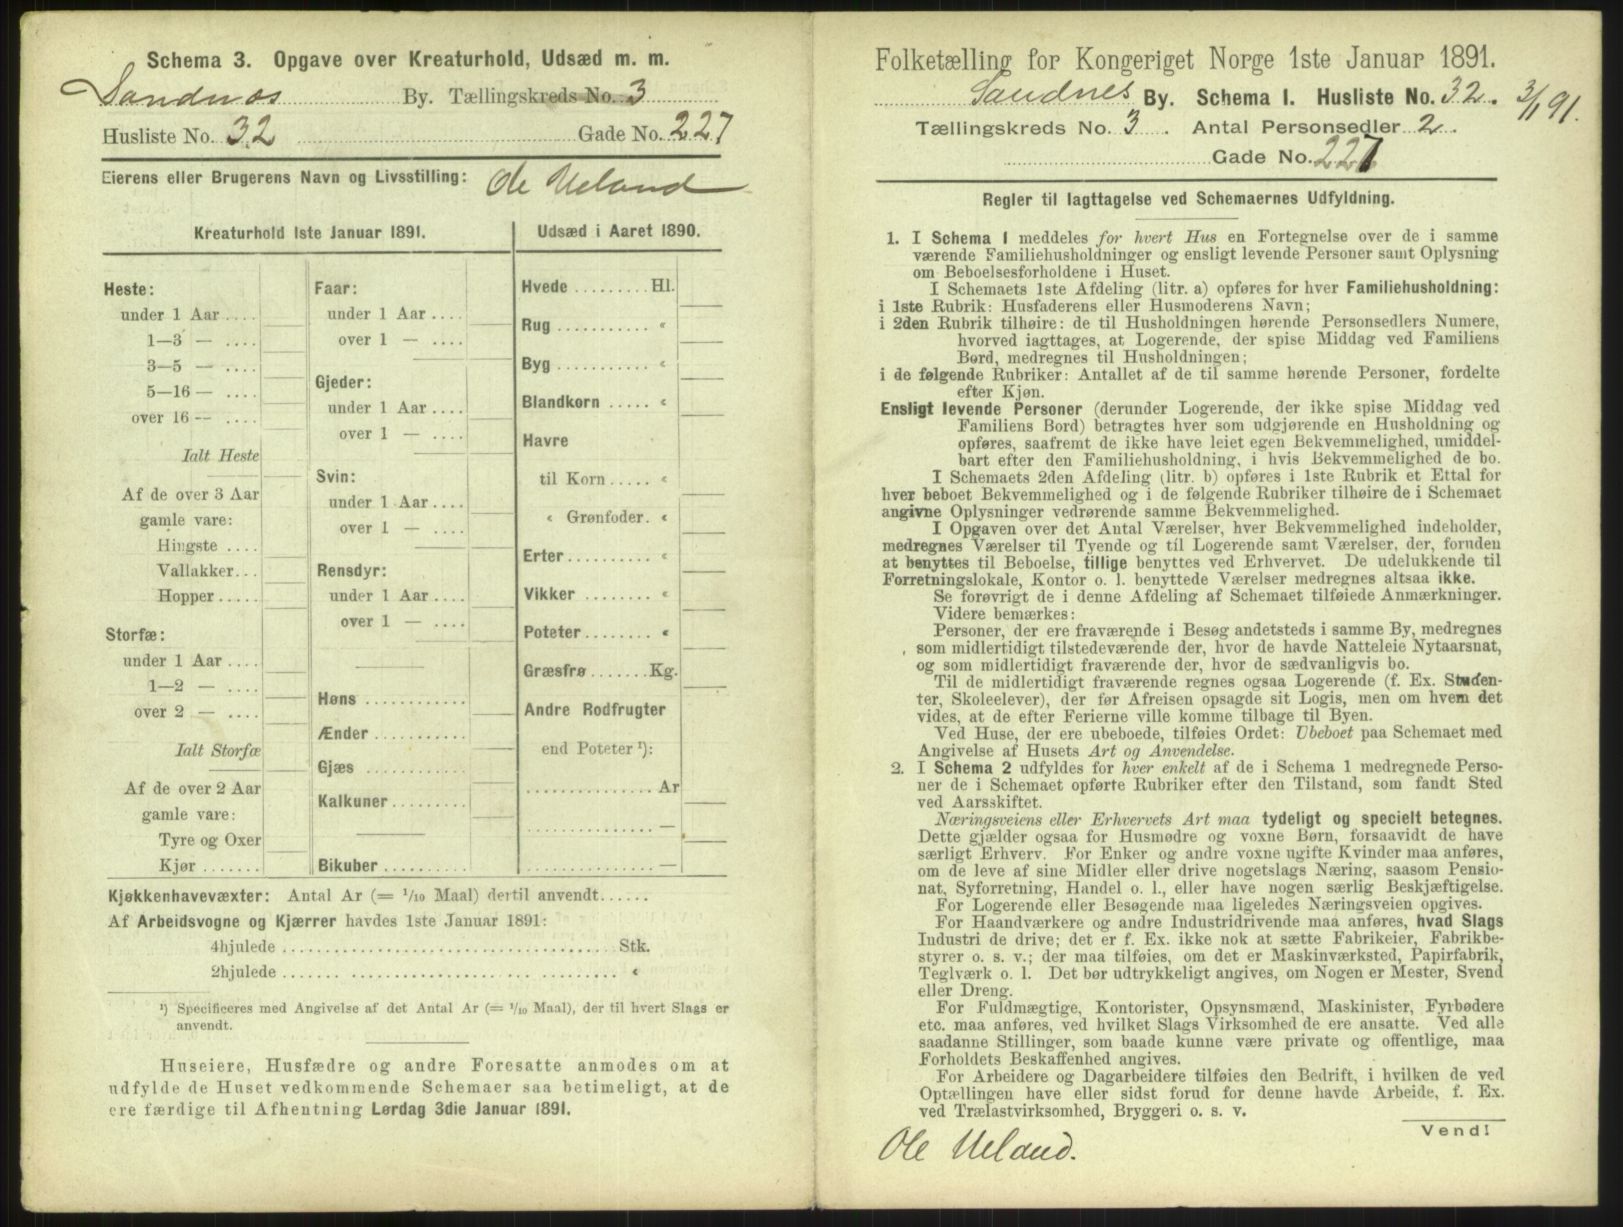 Schema 3. Opgave over Kreaturhold, Udsæd m. m.
Sandnes By. Tællingskreds No. 3
Husliste No. 32 Gade No. 227
Eierens eller Brugerens Navn og Livsstilling: Ole Ueland
Kreaturhold 1ste Januar 1891.
Heste:
under 1 Aar ....
1—3 — ....
3—5 — ....
5—16 — ....
over 16 — ....
Ialt Heste
Af de over 3 Aar
gamle vare:
Hingste ....
Vallakker...
Hopper .....
Storfæ:
under 1 Aar ....
1—2 — ....
over 2 — ....
Ialt Storfæ
Af de over 2 Aar
gamle vare:
Tyre og Oxer
Kjør .......
Faar:
under 1 Aar ....
over 1 — ....
Gjeder:
under 1 Aar ....
over 1 — ....
Svin:
under 1 Aar ....
over 1 — ....
Rensdyr:
under 1 Aar ....
over 1 — ....
Høns ...........
Ænder ..........
Gjæs ...........
Kalkuner ........
Bikuber .........
Udsæd i Aaret 1890.
Hvede ........ Hl.
Rug .......... «
Byg .......... «
Blandkorn ..... «
Havre
til Korn ..... «
« Grønfoder. «
Erter ......... «
Vikker ....... «
Poteter ....... «
Græsfrø ...... Kg.
Andre Rodfrugter
end Poteter ¹):
............... Ar
............... —
............... —
Kjøkkenhavevæxter: Antal Ar (= 1/10 Maal) dertil anvendt......
Af Arbeidsvogne og Kjærrer havdes 1ste Januar 1891:
4hjulede ...................................... Stk.
2hjulede ...................................... «
¹) Specificeres med Angivelse af det Antal Ar (= 1/10 Maal), der til hvert Slags er
anvendt.
Huseiere, Husfædre og andre Foresatte anmodes om at
udfylde de Huset vedkommende Schemaer saa betimeligt, at de
ere færdige til Afhentning Lørdag 3die Januar 1891.
Folketælling for Kongeriget Norge 1ste Januar 1891.
Sandnes By. Schema I. Husliste No. 32. 3/1 91.
Tællingskreds No. 3. Antal Personsedler 2.
Gade No. 227
Regler til Iagttagelse ved Schemaernes Udfyldning.
1. I Schema 1 meddeles for hvert Hus en Fortegnelse over de i samme
værende Familiehusholdninger og ensligt levende Personer samt Oplysning
om Beboelsesforholdene i Huset.
I Schemaets 1ste Afdeling (litr. a) opføres for hver Familiehusholdning:
i 1ste Rubrik: Husfaderens eller Husmoderens Navn;
i 2den Rubrik tilhøire: de til Husholdningen hørende Personsedlers Numere,
hvorved iagttages, at Logerende, der spise Middag ved Familiens
Bord, medregnes til Husholdningen;
i de følgende Rubriker: Antallet af de til samme hørende Personer, fordelte
efter Kjøn.
Ensligt levende Personer (derunder Logerende, der ikke spise Middag ved
Familiens Bord) betragtes hver som udgjørende en Husholdning og
opføres, saafremt de ikke have leiet egen Bekvemmelighed, umiddel-
bart efter den Familiehusholdning, i hvis Bekvemmelighed de bo.
I Schemaets 2den Afdeling (litr. b) opføres i 1ste Rubrik et Ettal for
hver beboet Bekvemmelighed og i de følgende Rubriker tilhøire de i Schemaet
angivne Oplysninger vedrørende samme Bekvemmelighed.
I Opgaven over det Antal Værelser, hver Bekvemmelighed indeholder,
medregnes Værelser til Tyende og til Logerende samt Værelser, der, foruden
at benyttes til Beboelse, tillige benyttes ved Erhvervet. De udelukkende til
Forretningslokale, Kontor o. l. benyttede Værelser medregnes altsaa ikke.
Se forøvrigt de i denne Afdeling af Schemaet tilføiede Anmærkninger.
Videre bemærkes:
Personer, der ere fraværende i Besøg andetsteds i samme By, medregnes
som midlertidigt tilstedeværende der, hvor de havde Natteleie Nytaarsnat,
og som midlertidigt fraværende der, hvor de sædvanligvis bo.
Til de midlertidigt fraværende regnes ogsaa Logerende (f. Ex. Studen-
ter, Skoleelever), der før Afreisen opsagde sit Logis, men om hvem det
vides, at de efter Ferierne ville komme tilbage til Byen.
Ved Huse, der ere ubeboede, tilføies Ordet: Ubeboet paa Schemaet med
Angivelse af Husets Art og Anvendelse.
2. I Schema 2 udfyldes for hver enkelt af de i Schema 1 medregnede Perso-
ner de i Schemaet opførte Rubriker efter den Tilstand, som fandt Sted
ved Aarsskiftet.
Næringsveiens eller Erhvervets Art maa tydeligt og specielt betegnes.
Dette gjælder ogsaa for Husmødre og voxne Børn, forsaavidt de have
særligt Erhverv. For Enker og andre voxne ugifte Kvinder maa anføres,
om de leve af sine Midler eller drive nogetslags Næring, saasom Pensio-
nat, Syforretning, Handel o. l., eller have nogen særlig Beskjæftigelse.
For Logerende eller Besøgende maa ligeledes Næringsveien opgives.
For Haandværkere og andre Industridrivende maa anføres, hvad Slags
Industri de drive; det er f. Ex. ikke nok at sætte Fabrikeier, Fabrikbe-
styrer o. s. v.; der maa tilføies, om det er Maskinværksted, Papirfabrik,
Teglværk o. l. Det bør udtrykkeligt angives, om Nogen er Mester, Svend
eller Dreng.
For Fuldmægtige, Kontorister, Opsynsmænd, Maskinister, Fyrbødere
etc. maa anføres, ved hvilket Slags Virksomhed de ere ansatte. Ved alle
saadanne Stillinger, som baade kunne være private og offentlige, maa
Forholdets Beskaffenhed angives.
For Arbeidere og Dagarbeidere tilføies den Bedrift, i hvilken de ved
Optællingen have eller sidst forud for denne havde Arbeide, f. Ex.
ved Trælastvirksomhed, Bryggeri o. s. v.
Vend!
Ole Ueland.